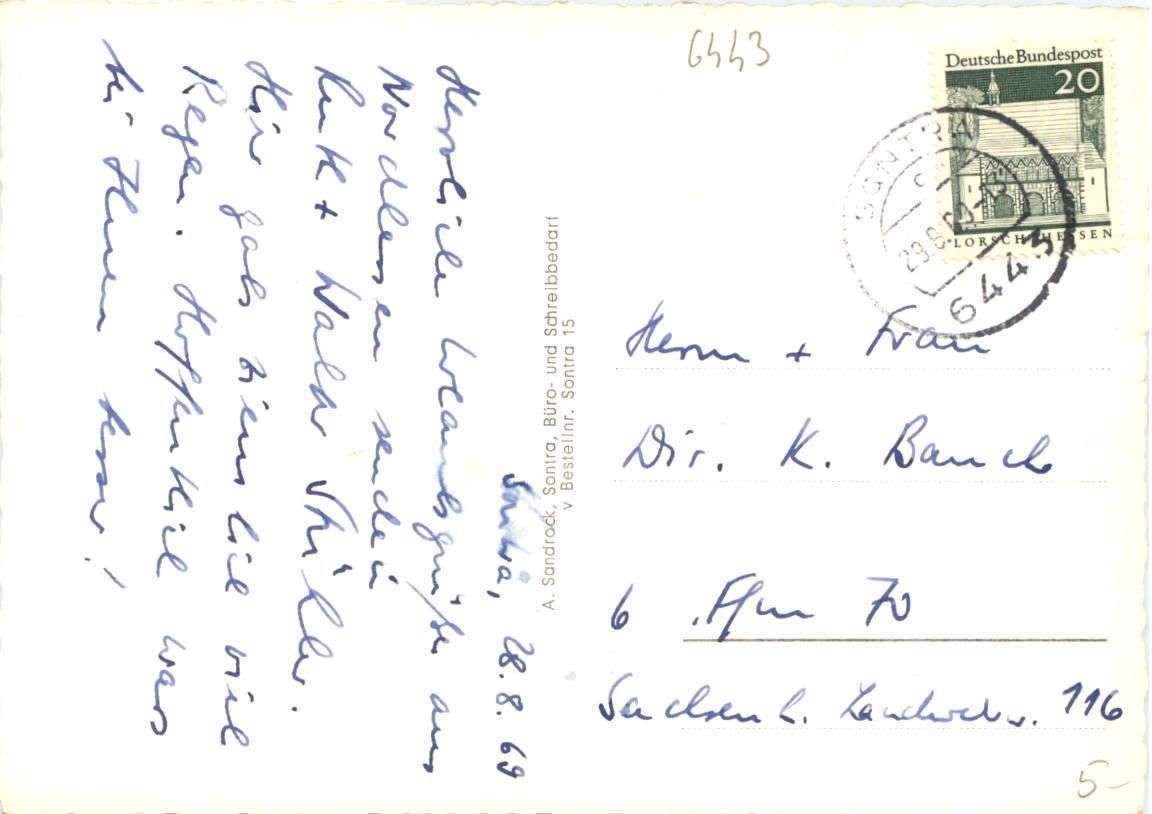 Sontra, 28.8.69
Herzliche Urlaubsgrüße aus
Nordhessen senden
Ruth + Walter
Hier gabs ziemlich viel
Regen. Hoffentlich wars
bei Ihnen besser!
A. Sandrock, Sontra, Büro- und Schreibbedarf
v Bestellnr. Sontra 15
6443
Deutsche Bundespost
20
LORSCH HESSEN
SONTRA
29.8.69
6443
Herrn + Frau
Dir. K.
6 Ffm 70
Sachsenh. Landwehrw. 116
5-